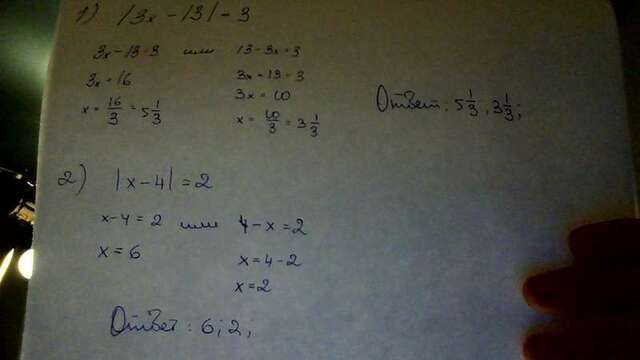 1) |3x-13|=3
3x-13=3 или 13-3x=3
3x=16 3x=13-3
x=16/3=5 1/3 3x=10
x=10/3=3 1/3
Ответ: 5 1/3; 3 1/3;
2) |x-4|=2
x-4=2 или 4-x=2
x=6 x=4-2
x=2
Ответ: 6; 2;